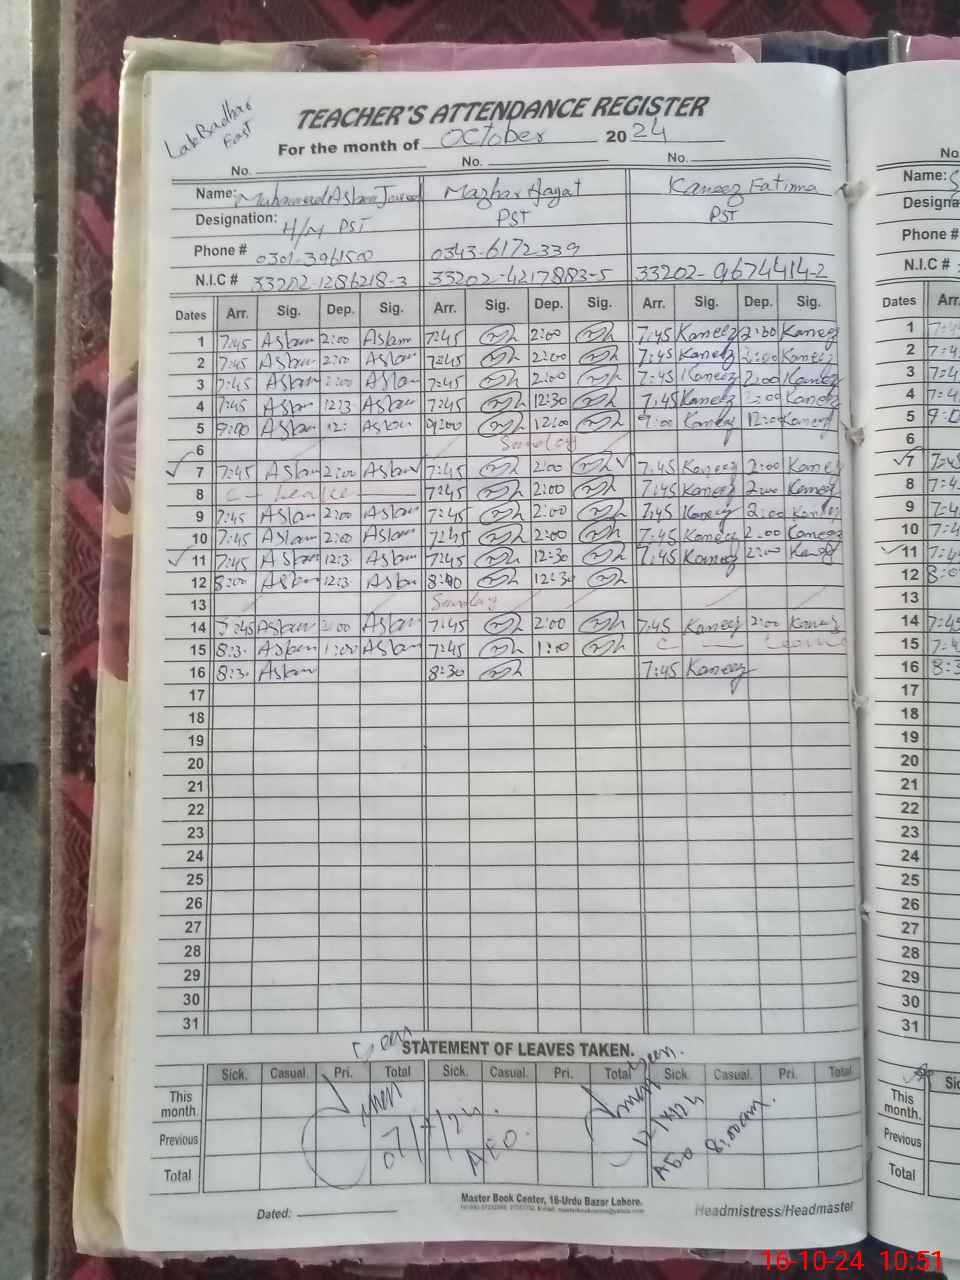 LakBadhar
East
TEACHER'S ATTENDANCE REGISTER
For the month of October 2024
No. No. No.
Name: Muhammad Aslam Javed Mazhar Hayat Kaneez Fatima
Designation: H/M PST PST PST
Phone # 0343-6172339
N.I.C # 33202-1286218-3 33202-4217883-5 33202-9674414-2
Dates Arr. Sig. Dep. Sig. Arr. Sig. Dep. Sig. Arr. Sig. Dep. Sig.
1 7:45 Aslam 2:00 Aslam 7:45 2:00 7:45 Kaneez 2:00 Kaneez
2 7:45 Aslam 2:00 Aslam 7:45 2:00 7:45 Kaneez 2:00 Kaneez
3 7:45 Aslam 2:00 Aslam 7:45 2:00 7:45 Kaneez 2:00 Kaneez
4 7:45 Aslam 12:3 Aslam 7:45 12:30 7:45 Kaneez Kaneez
5 9:00 Aslam 12: Aslam 9:00 12:00 9:00 Kaneez 12:00 Kaneez
6 Sunday
7 7:45 Aslam 2:00 Aslam 7:45 2:00 7:45 Kaneez 2:00 Kaneez
8 C - Leave 7:45 2:00 7:45 Kaneez 2:00 Kaneez
9 7:45 Aslam 2:00 Aslam 7:45 2:00 7:45 Kaneez 2:00 Kaneez
10 7:45 Aslam 2:00 Aslam 7:45 2:00 7:45 Kaneez 2:00 Kaneez
11 7:45 Aslam 12:3 Aslam 7:45 12:30 7:45 Kaneez 2:00 Kaneez
12 8:00 Aslam 12:3 Aslam 8:00 12:30
13 Sunday
14 7:45 Aslam 2:00 Aslam 7:45 2:00 7:45 Kaneez 2:00 Kaneez
15 8:3. Aslam 1:00 Aslam 7:45 1:00 C - Leave
16 8:3. Aslam 8:30 7:45 Kaneez
17
18
19
20
21
22
23
24
25
26
27
28
29
30
31
Seen
STATEMENT OF LEAVES TAKEN.
Seen.
Sick. Casual. Pri. Total Sick. Casual. Pri. Total Sick. Casual. Pri. Total
This month.
Previous
Total
AEO.
AEO
8:00am.
Master Book Center, 16-Urdu Bazar Lahore.
Dated: Headmistress/Headmaster
No
Name:
Designa
Phone #
N.I.C #
Dates Arr.
1 7:4
2 7:4
3 7:4
4 7:4
5 9:0
6
7 7:4
8 7:4
9 7:4
10 7:4
11 7:4
12 8:0
13
14 7:45
15 7:4
16 8:3
17
18
19
20
21
22
23
24
25
26
27
28
29
30
31
Sic
This month.
Previous
Total
16-10-24 10:51